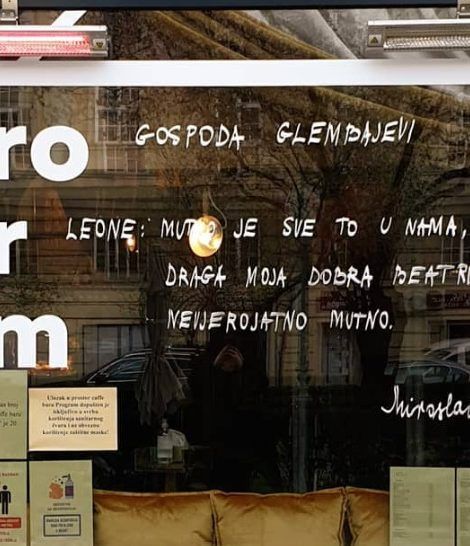 ro
r
m
GOSPODA GLEMBAJEVI
LEONE: MUTNO JE SVE TO U NAMA,
DRAGA MOJA DOBRA BEATR
NEVJEROJATNO MUTNO.
Miroslav
Ulazak u prostor caffe
bara Program dopušten je
isključivo u svrhu
korištenja sanitarnog
čvora i uz obvezno
korištenje zaštitne maske!
je 20